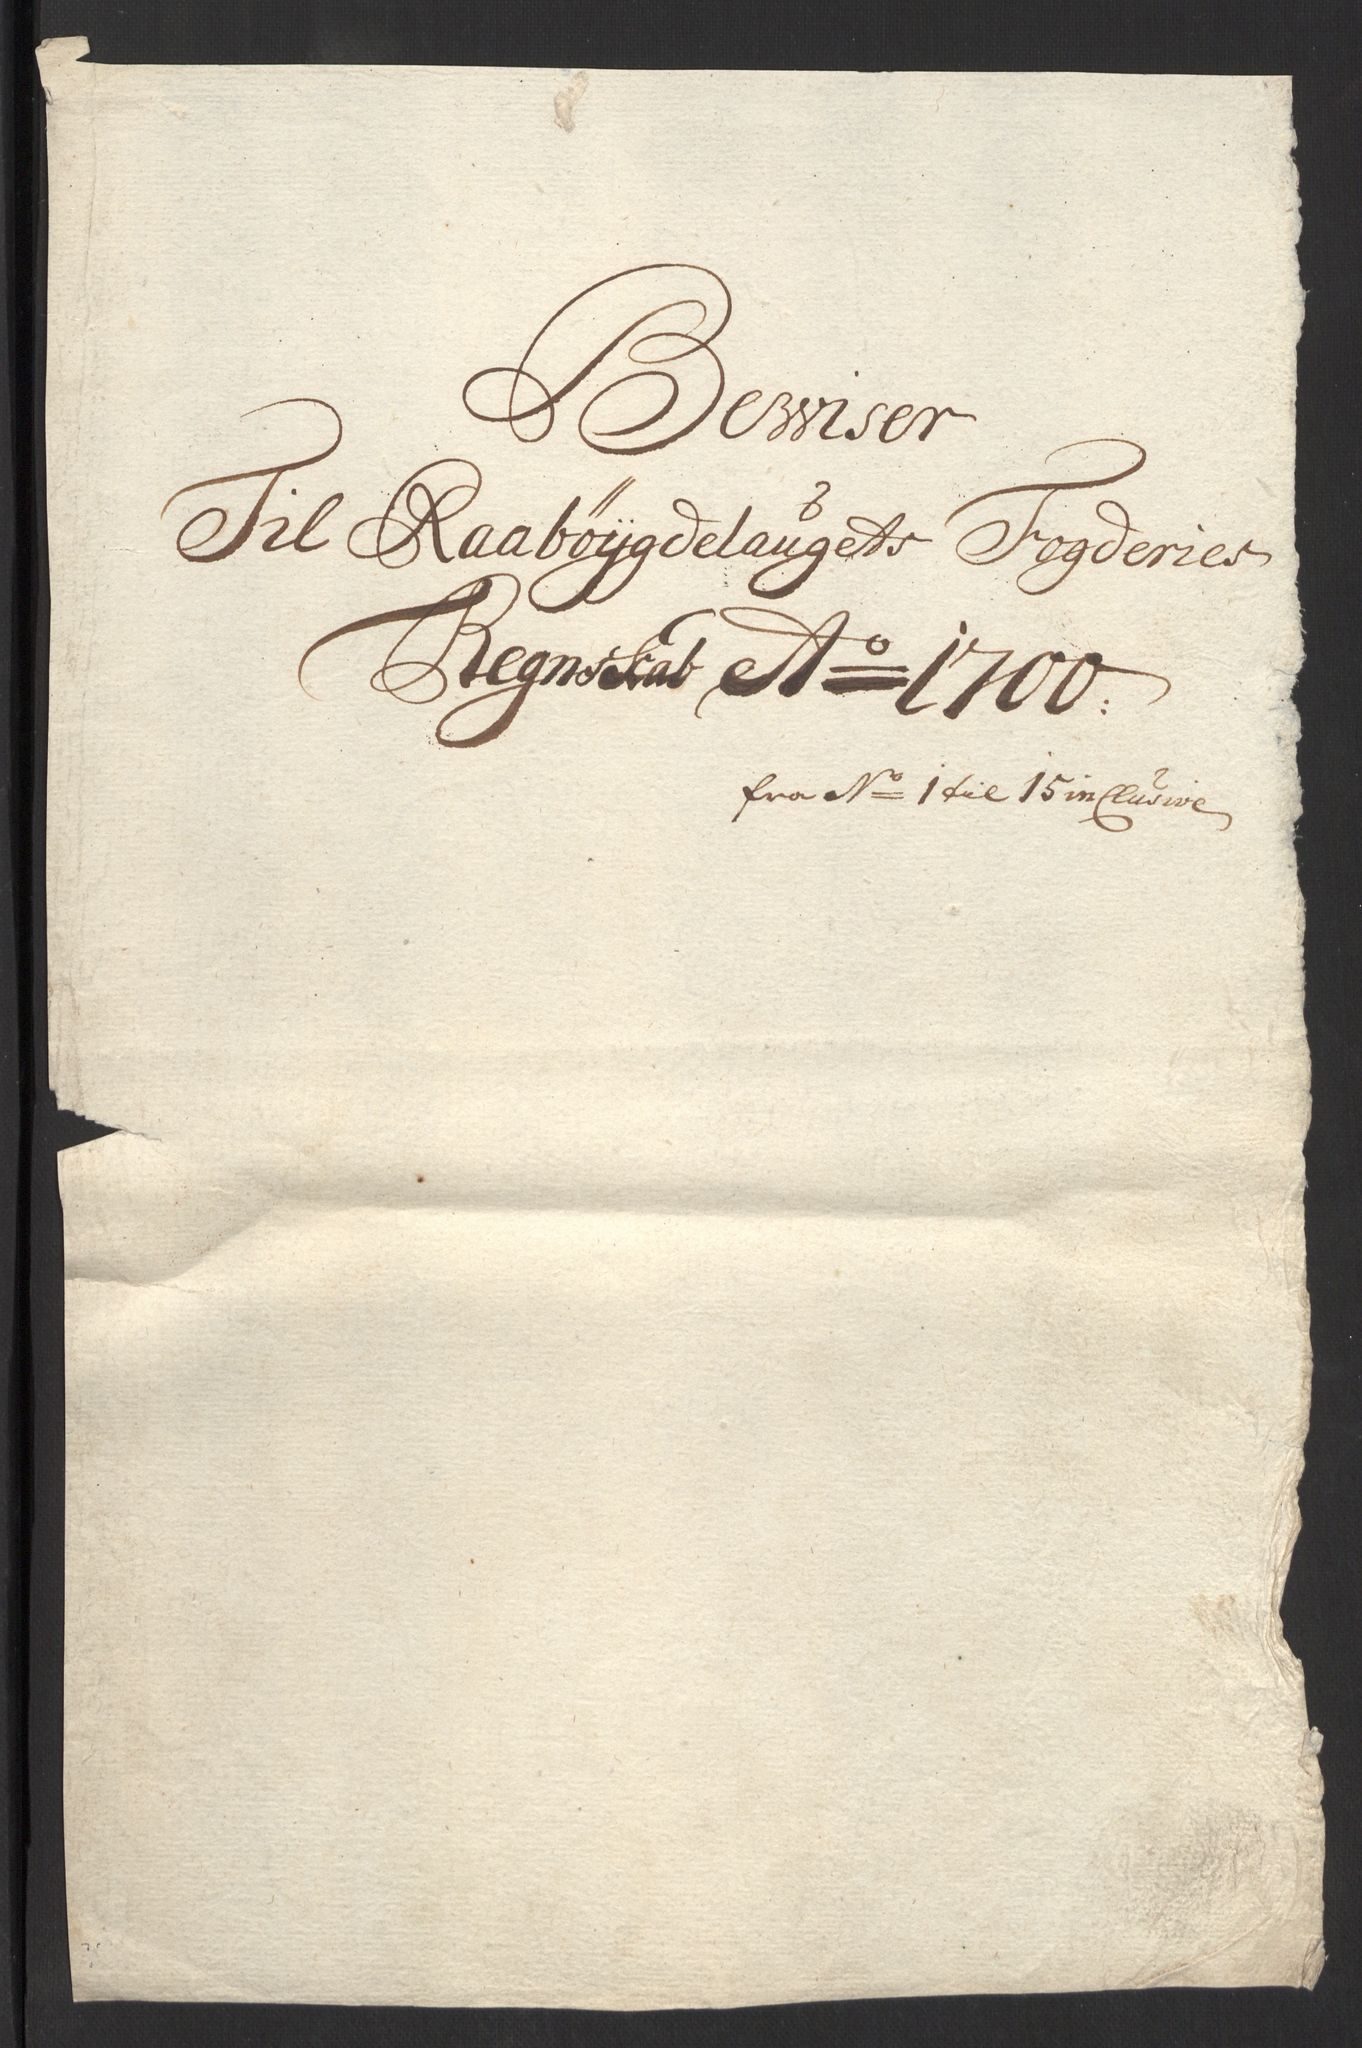 Bewiser
Til Raabøÿgdelaugets Fogderies
Regnskab Ao 1700:
fra No 1 til 15 inClusive